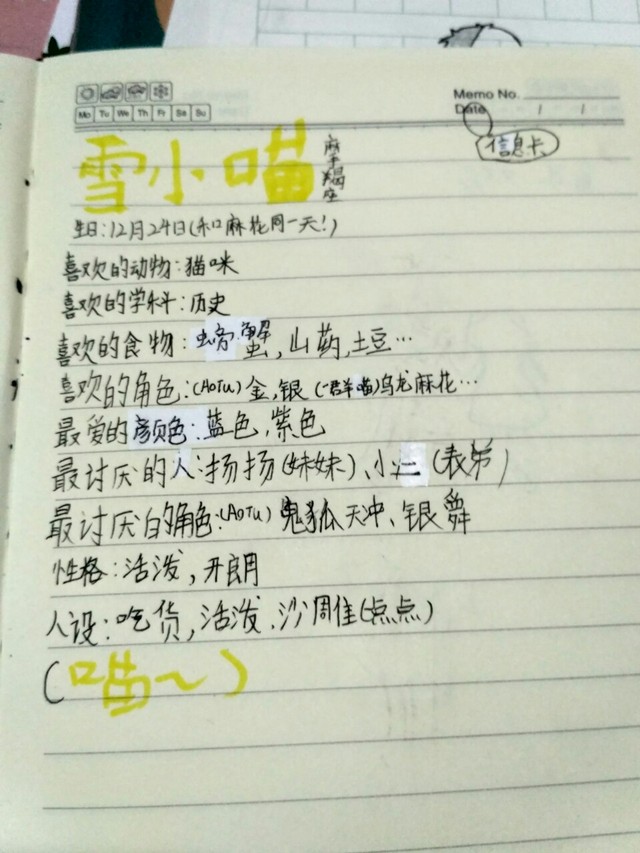 Memo No.
Mo Tu We Th Fr Sa Su
Date / /
信息卡
雪小喵 摩羯座
生日:12月24日(和麻花同一天!)
喜欢的动物:猫咪
喜欢的学科:历史
喜欢的食物:螃蟹,山药,土豆…
喜欢的角色:(AOTU)金,银(一群喵)乌龙麻花…
最爱的颜色:蓝色,紫色
最讨厌的人:扬扬(妹妹)、小二(表弟)
最讨厌的角色:(AOTU)鬼狐天冲、银舞
性格:活泼,开朗
人设:吃货,活泼、沙雕(点点)
(喵~)